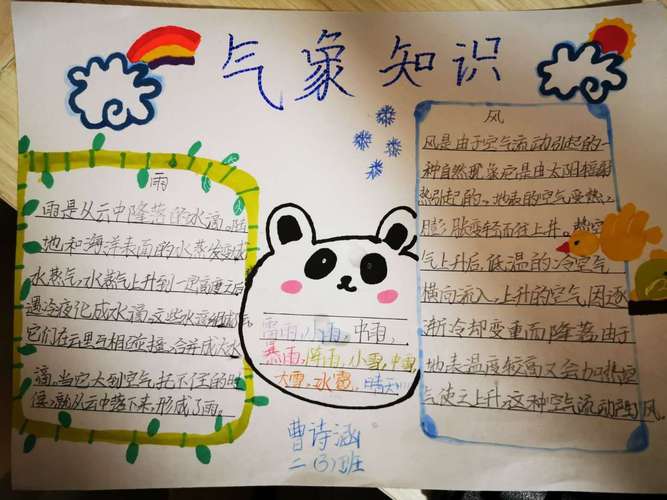 气象知识
雨
雨是从云中降落的水滴。陆
地和海洋表面的水蒸发变成
水蒸气,水蒸气上升到一定高度之后
遇冷液化成水滴,这些水滴组成云,
它们在云里互相碰撞,合并成大水
滴,当它大到空气托不住的时
候,就从云中落下来,形成了雨。
雷雨,小雨,中雨,
暴雨,阵雨,小雪,中雪,
大雪,水雹,晴天
曹诗涵
二(3)班
风
风是由于空气流动引起的一
种自然现象,它是由太阳辐射
热引起的。地表的空气受热
膨胀变轻而往上升。热空
气上升后,低温的冷空气
横向流入,上升的空气因逐
渐冷却变重而降落,由于
地表温度较高又会加热空
气使之上升,这种空气流动即为风。